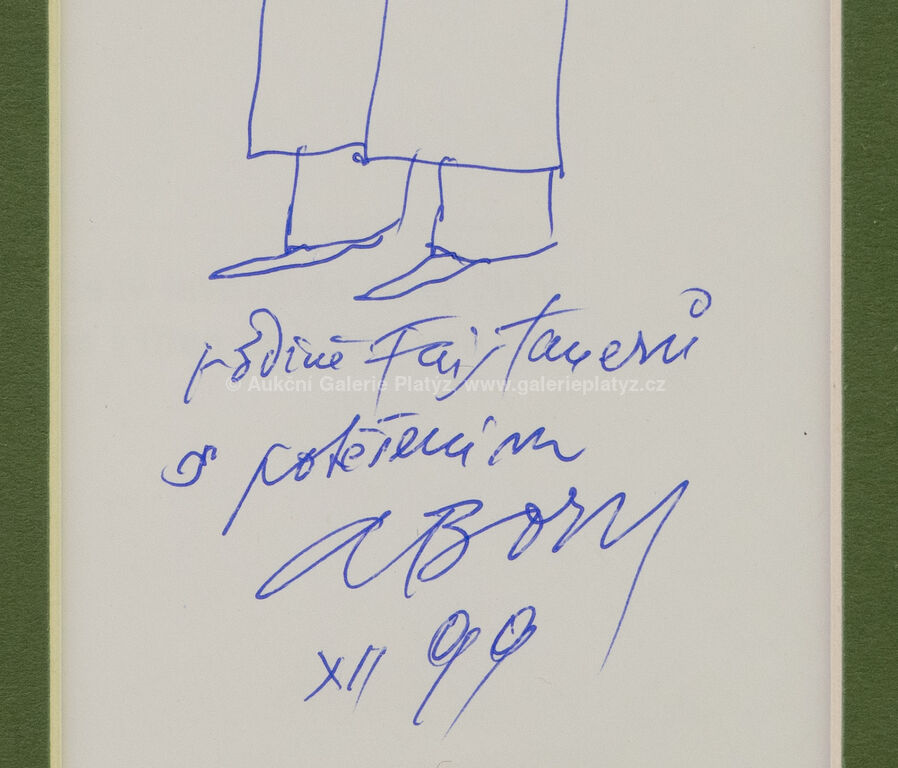 rodině Fajstauerů
© Aukční Galerie Platýz, www.galerieplatyz.cz
s potěšením
A Born
XII 99